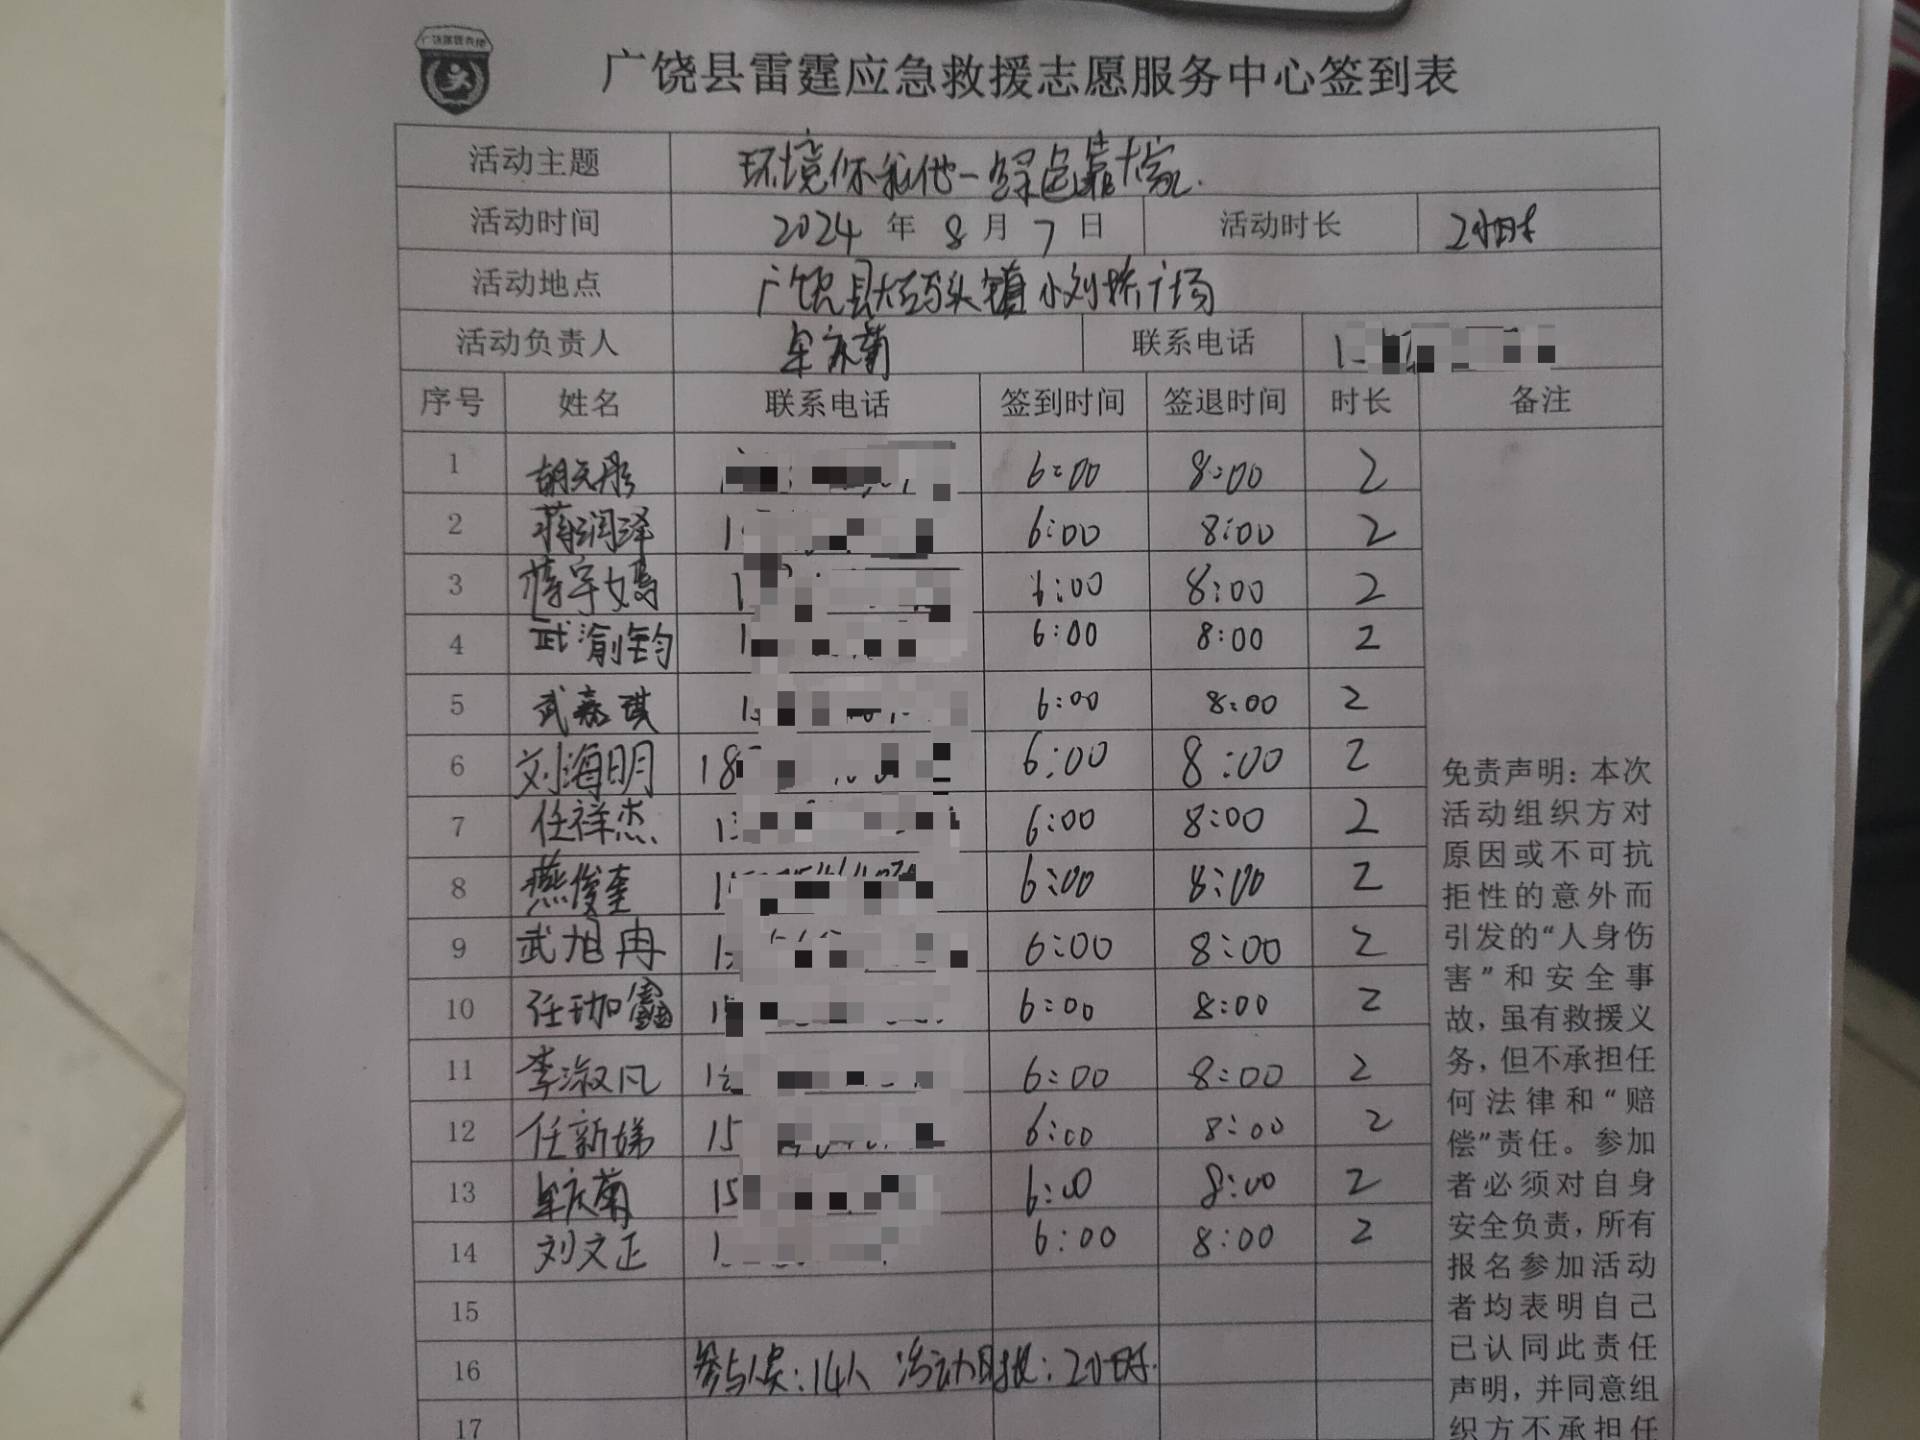 广饶县雷霆应急救援志愿服务中心签到表
活动主题 环境你我他一绿色靠大家.
活动时间 2024 年 8 月 7 日 活动时长 2小时
活动地点 广饶县大码头镇小刘桥广场
活动负责人 牟庆菊 联系电话
序号 姓名 联系电话 签到时间 签退时间 时长 备注
1 胡元彤 6:00 8:00 2
2 蒋润泽 6:00 8:00 2
3 蒋宇嫣 6:00 8:00 2
4 武渝钧 6:00 8:00 2
5 武嘉琪 6:00 8:00 2
6 刘海明 18 6:00 8:00 2
7 任祥杰 6:00 8:00 2
8 燕俊奎 6:00 8:00 2
9 武旭冉 6:00 8:00 2
10 任珈鑫 6:00 8:00 2
11 李淑凡 6:00 8:00 2
12 任新娣 15 6:00 8:00 2
13 牟庆菊 15 6:00 8:00 2
14 刘文正 6:00 8:00 2
15
16 参与人员:14人 活动时长:2小时.
17
免责声明:本次
活动组织方对
原因或不可抗
拒性的意外而
引发的“人身伤
害”和安全事
故,虽有救援义
务,但不承担任
何法律和“赔
偿”责任。参加
者必须对自身
安全负责,所有
报名参加活动
者均表明自己
已认同此责任
声明,并同意组
织方不承担任